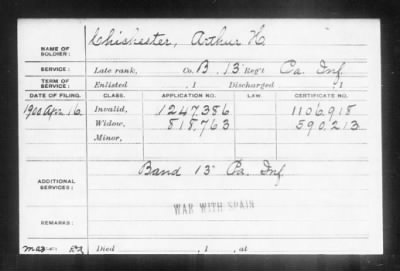 NAME OF SOLDIER: Chichester, Arthur H.
SERVICE: Late rank, Co. B, 13 Reg't Pa. Inf.
TERM OF SERVICE: Enlisted , 1 Discharged , 1
DATE OF FILING. CLASS. APPLICATION NO. LAW. CERTIFICATE NO.
1900 Apr. 16 Invalid, 1247,386 1106,918
Widow, 818,763 590,213
Minor,
ADDITIONAL SERVICES: Band 13 Pa. Inf
WAR WITH SPAIN
REMARKS:
Died , 1 , at